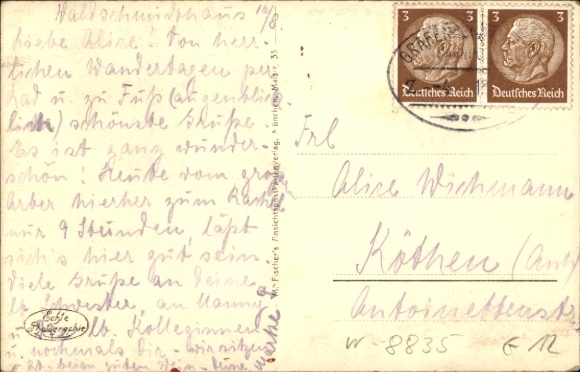 Waldschmidthaus 10/8
Liebe Alice! Von herr-
lichen Wandertagen per
Rad u. zu Fuß (augenblick-
lich) schönste Grüße
Es ist ganz wunder-
schön! Heute vom großen
Arber hierher zum Rachel
nur 9 Stunden, läßt
sich's hier gut sein.
Viele Grüße an Deine
lb. Schwester, an
lb. Kolleginnen
u. nochmals Dir. Wir sitzen
z. Zt. beim guten Wein.
Echte
Photographie
M. Fischer's Ansichtspostkartenverlag, München, Mai 35
3 3
Deutsches Reich Deutsches Reich
GRAFENAU
Frl
Alice Wichmann
Köthen (Anh)
Antoinettenstr
W-8835 E 12